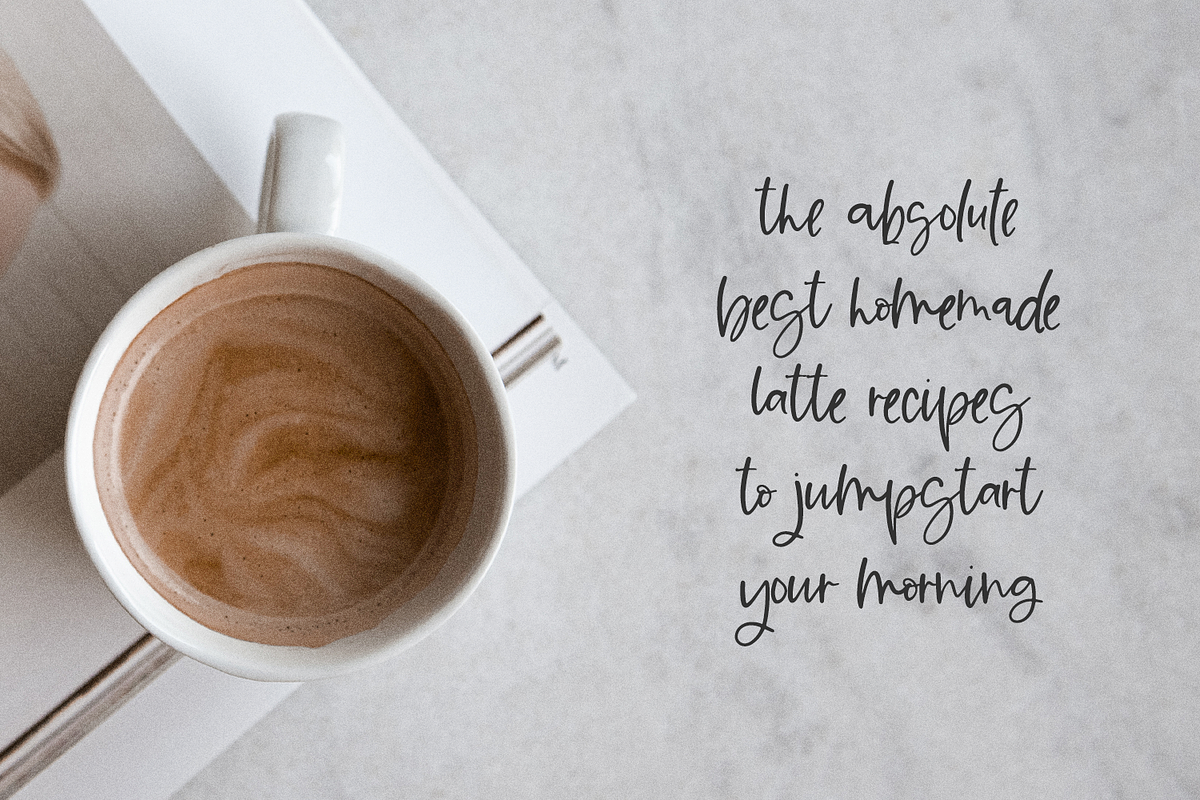 the absolute
best homemade
latte recipes
to jumpstart
your morning